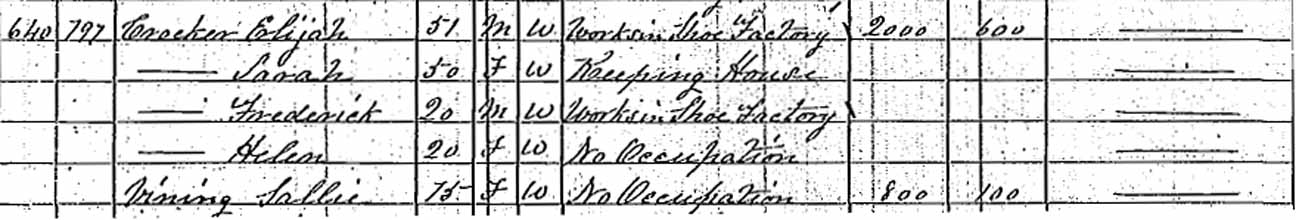 640 797 Crocker Elijah 51 M W Works in Shoe Factory 2000 600 —
— Sarah 50 F W Keeping House —
— Frederick 20 M W Works in Shoe Factory —
— Helen 20 F W No Occupation —
Vining Sallie 75 F W No Occupation 800 100 —